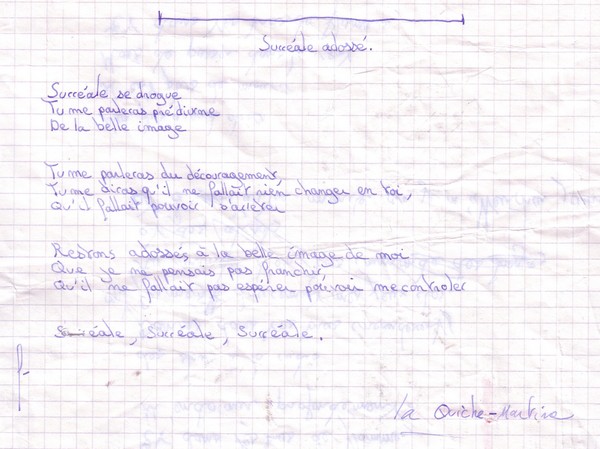 Surréale adossé.
Surréale se drogue
Tu me parleras prédivine
De la belle image
Tu me parleras du découragement,
Tu me diras qu'il ne fallait rien changer en toi,
Qu'il fallait pouvoir s'arrêter
Restons adossés à la belle image de moi
Que je ne pensais pas franchir,
Qu'il ne fallait pas espérer pouvoir me controler
Surréale, Surréale, Surréale.
la Quiche-Martine